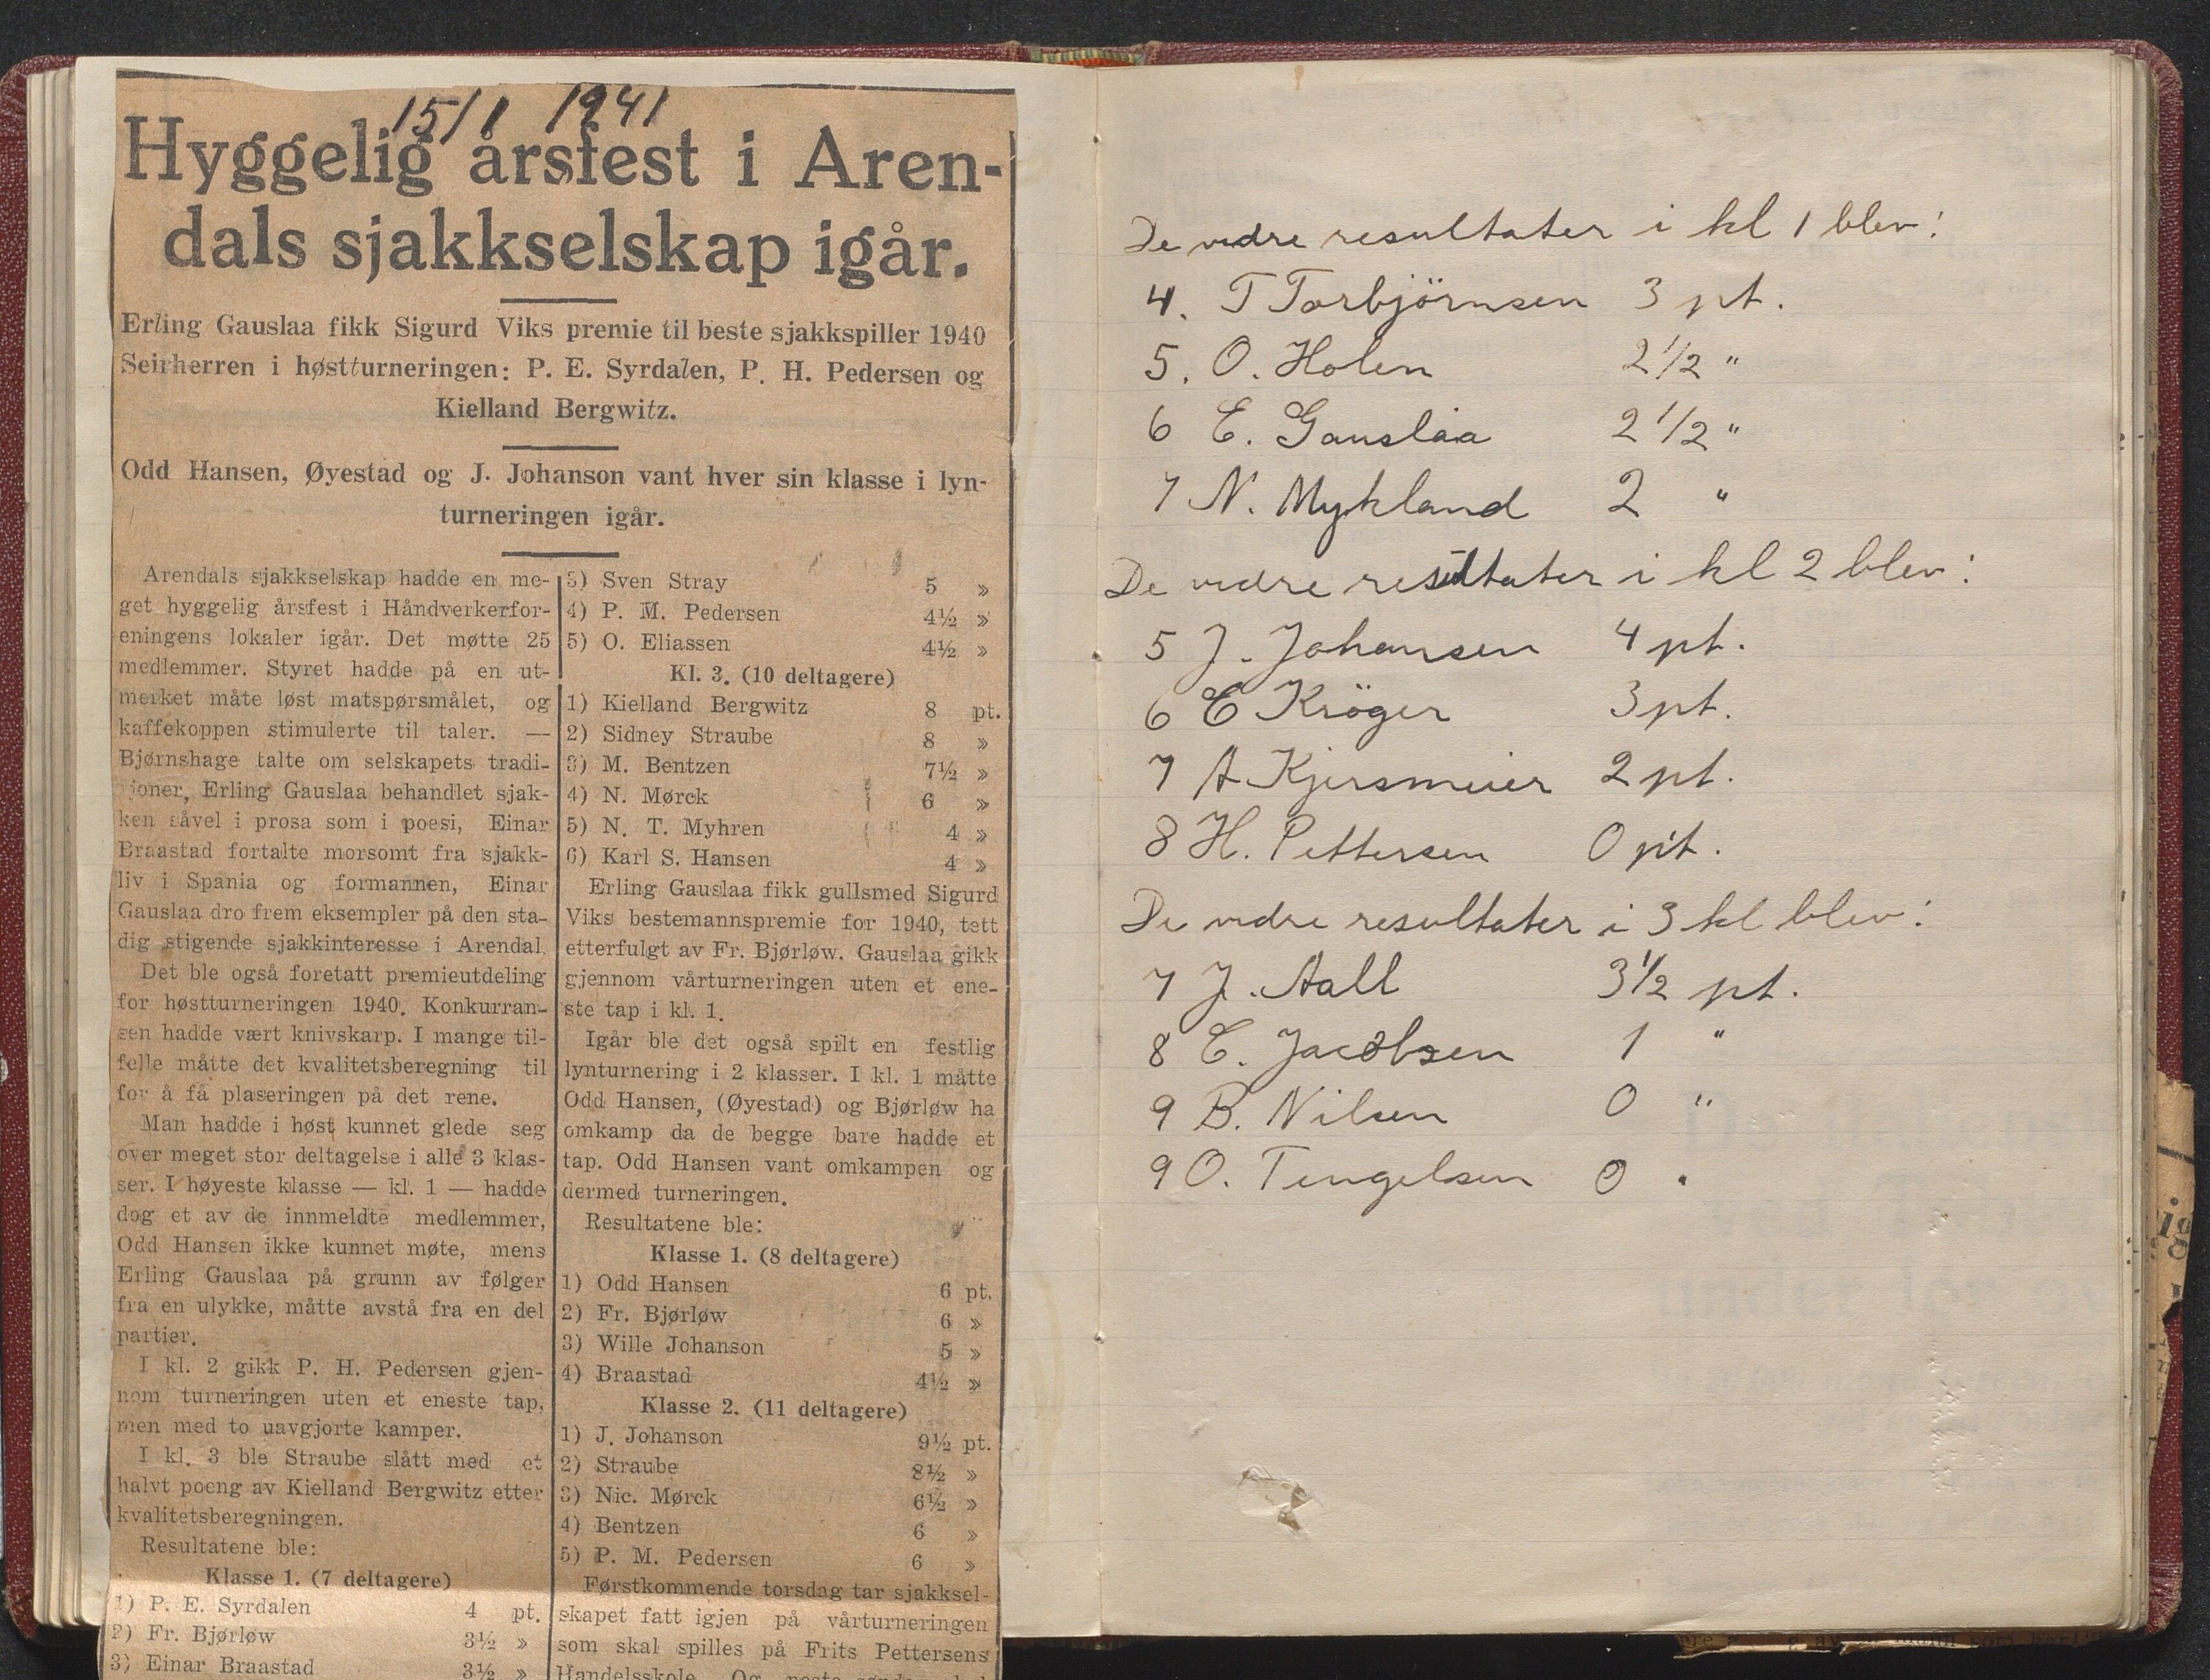 15/1 1941
Hyggelig årsfest i Aren-
dals sjakkselskap igår.
Erling Gauslaa fikk Sigurd Viks premie til beste sjakkspiller 1940
Seirherren i høstturneringen: P. E. Syrdalen, P. H. Pedersen og
Kielland Bergwitz.
Odd Hansen, Øyestad og J. Johanson vant hver sin klasse i lyn-
turneringen igår.
Arendals sjakkselskap hadde en me-
get hyggelig årsfest i Håndverkerfor-
eningens lokaler igår. Det møtte 25
medlemmer. Styret hadde på en ut-
merket måte løst matspørsmålet, og
kaffekoppen stimulerte til taler. —
Bjørnshage talte om selskapets tradi-
sjoner, Erling Gauslaa behandlet sjak-
ken såvel i prosa som i poesi, Einar
Braastad fortalte morsomt fra sjakk-
liv i Spania og formannen, Einar
Gauslaa dro frem eksempler på den sta-
dig stigende sjakkinteresse i Arendal.
Det ble også foretatt premieutdeling
for høstturneringen 1940. Konkurran-
sen hadde vært knivskarp. I mange til-
felle måtte det kvalitetsberegning til
for å få plaseringen på det rene.
Man hadde i høst kunnet glede seg
over meget stor deltagelse i alle 3 klas-
ser. I høyeste klasse — kl. 1 — hadde
dog et av de innmeldte medlemmer,
Odd Hansen ikke kunnet møte, mens
Erling Gauslaa på grunn av følger
fra en ulykke, måtte avstå fra en del
partier.
I kl. 2 gikk P. H. Pedersen gjen-
nom turneringen uten et eneste tap,
men med to uavgjorte kamper.
I kl. 3 ble Straube slått med et
halvt poeng av Kielland Bergwitz etter
kvalitetsberegningen.
Resultatene ble:
Klasse 1. (7 deltagere)
1) P. E. Syrdalen 4 pt.
2) Fr. Bjørløw 3½ »
3) Einar Braastad 3½ »
3) Sven Stray 5 »
4) P. M. Pedersen 4½ »
5) O. Eliassen 4½ »
Kl. 3. (10 deltagere)
1) Kielland Bergwitz 8 pt.
2) Sidney Straube 8 »
3) M. Bentzen 7½ »
4) N. Mørck 6 »
5) N. T. Myhren 4 »
6) Karl S. Hansen 4 »
Erling Gauslaa fikk gullsmed Sigurd
Viks bestemannspremie for 1940, tett
etterfulgt av Fr. Bjørløw. Gauslaa gikk
gjennom vårturneringen uten et ene-
ste tap i kl. 1.
Igår ble det også spilt en festlig
lynturnering i 2 klasser. I kl. 1 måtte
Odd Hansen, (Øyestad) og Bjørløw ha
omkamp da de begge bare hadde et
tap. Odd Hansen vant omkampen og
dermed turneringen.
Resultatene ble:
Klasse 1. (8 deltagere)
1) Odd Hansen 6 pt.
2) Fr. Bjørløw 6 »
3) Wille Johanson 5 »
4) Braastad 4½ »
Klasse 2. (11 deltagere)
1) J. Johanson 9½ pt.
2) Straube 8½ »
3) Nic. Mørck 6½ »
4) Bentzen 6 »
5) P. M. Pedersen 6 »
Førstkommende torsdag tar sjakksel-
skapet fatt igjen på vårturneringen
som skal spilles på Frits Pettersens
Handelsskole. Og
De vidre resultater i kl 1 blev:
4. T Torbjörnsen 3 pt.
5. O. Holen 2 1/2 "
6 E. Gauslåa 2 1/2 "
7 N. Mykland 2 "
De vidre resultater i kl 2 blev:
5 J. Johansen 4 pt.
6 E Kröger 3 pt.
7 A Kjersmeier 2 pt.
8 H. Pettersen 0 pt.
De vidre resultater i 3 kl blev:
7 J. Aall 3 1/2 pt.
8 E. Jacobsen 1 "
9 B. Nilsen 0 "
9 O. Tengelsen 0 "